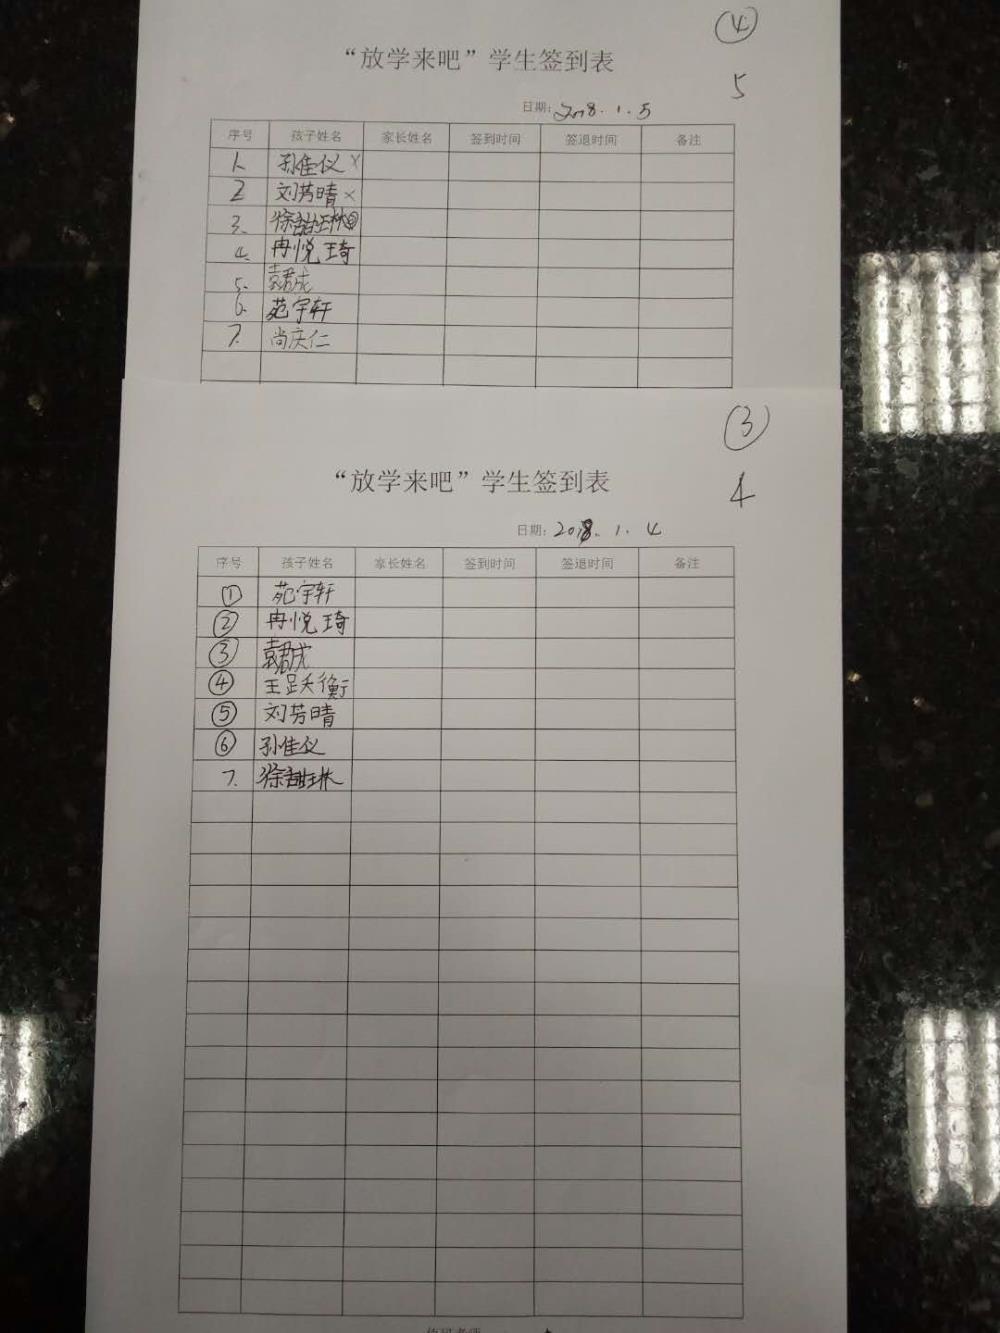 ④
“放学来吧”学生签到表
5
日期：2018.1.5
序号 孩子姓名 家长姓名 签到时间 签退时间 备注
1. 孙佳仪 ×
2 刘芳晴 ×
3. 徐甜琳
4. 冉悦琦
5. 袁君成
6. 苑宇轩
7. 尚庆仁
③
“放学来吧”学生签到表
4
日期：2018.1.4
序号 孩子姓名 家长姓名 签到时间 签退时间 备注
① 苑宇轩
② 冉悦琦
③ 袁君成
④ 王跃衡
⑤ 刘芳晴
⑥ 孙佳仪
7. 徐甜琳